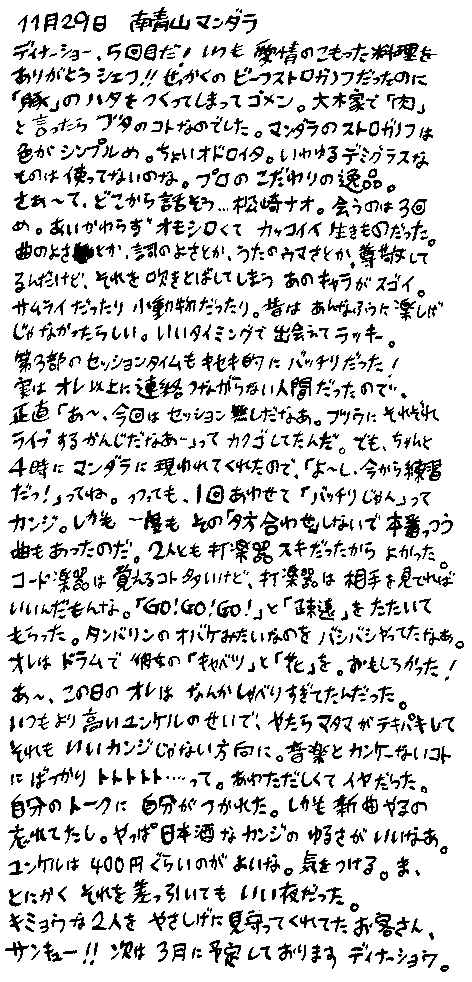 11月29日 南青山マンダラ
ディナーショー、5回目だ！いつも 愛情のこもった料理を
ありがとうシェフ!! せっかくの ビーフストロガノフだったのに
「豚」のハタをつくってしまってゴメン。大木家で「肉」
と言ったら ブタのコトなのでした。マンダラのストロガノフは
色がシンプルめ。ちょいオドロイタ。いわゆるデミグラスな
ものは使ってないのな。プロのこだわりの逸品。
さあ〜て、どこから話そう…松崎ナオ。会うのは3回
め。あいかわらず オモシロくて カッコイイ 生きものだった。
曲のよさとか、詞のよさとか、うたのウマさとか、尊敬して
るんだけど、それを吹きとばしてしまう あのキャラがスゴイ。
サムライだったり 小動物だったり。昔は あんなふうに楽しげ
じゃなかったらしい。いいタイミングで 出会えてラッキー。
第3部のセッションタイムもキセキ的に バッチリだった！
実は オレ以上に連絡つながらない人間だったので、
正直「あ〜、今回は セッション無しだなあ。フツウに それぞれ
ライブするかんじだなあ〜」って カクゴしてたんだ。でも、ちゃんと
4時に マンダラに 現われてくれたので、「よ〜し、今から練習
だっ！」ってね。つっても、1回あわせて「バッチリじゃん」って
カンジ。しかも 一度も その夕方合わせしないで 本番っつう
曲もあったのだ。2人とも 打楽器 スキだったから よかった。
コード楽器は 覚えるコト多いけど、打楽器は 相手を見てれば
いいんだもんな。「GO!GO!GO!」と「疎遠」を たたいて
もらった。タンバリンのオバケみたいなのを バシバシやってたなあ。
オレは ドラムで 彼女の「キャベツ」と「花」を。おもしろかった！
あ〜、この日の オレは なんかしゃべりすぎてたんだった。
いつもより高いユンケルのせいで、やたらアタマがテキパキして
それも いいカンジじゃない方向に。音楽とカンケーないコト
に ばっかり トトトトト……って。あわただしくて イヤだった。
自分のトークに 自分がつかれた。しかも 新曲やるの
忘れてたし。やっぱ 日本酒なカンジの ゆるさがいいなあ。
ユンケルは 400円ぐらいのが よいな。気をつける。ま、
とにかく それを差っ引いても いい夜だった。
キミョウな2人を やさしげに見守ってくれてた お客さん、
サンキュー!! 次は 3月に予定しております ディナーショウ。